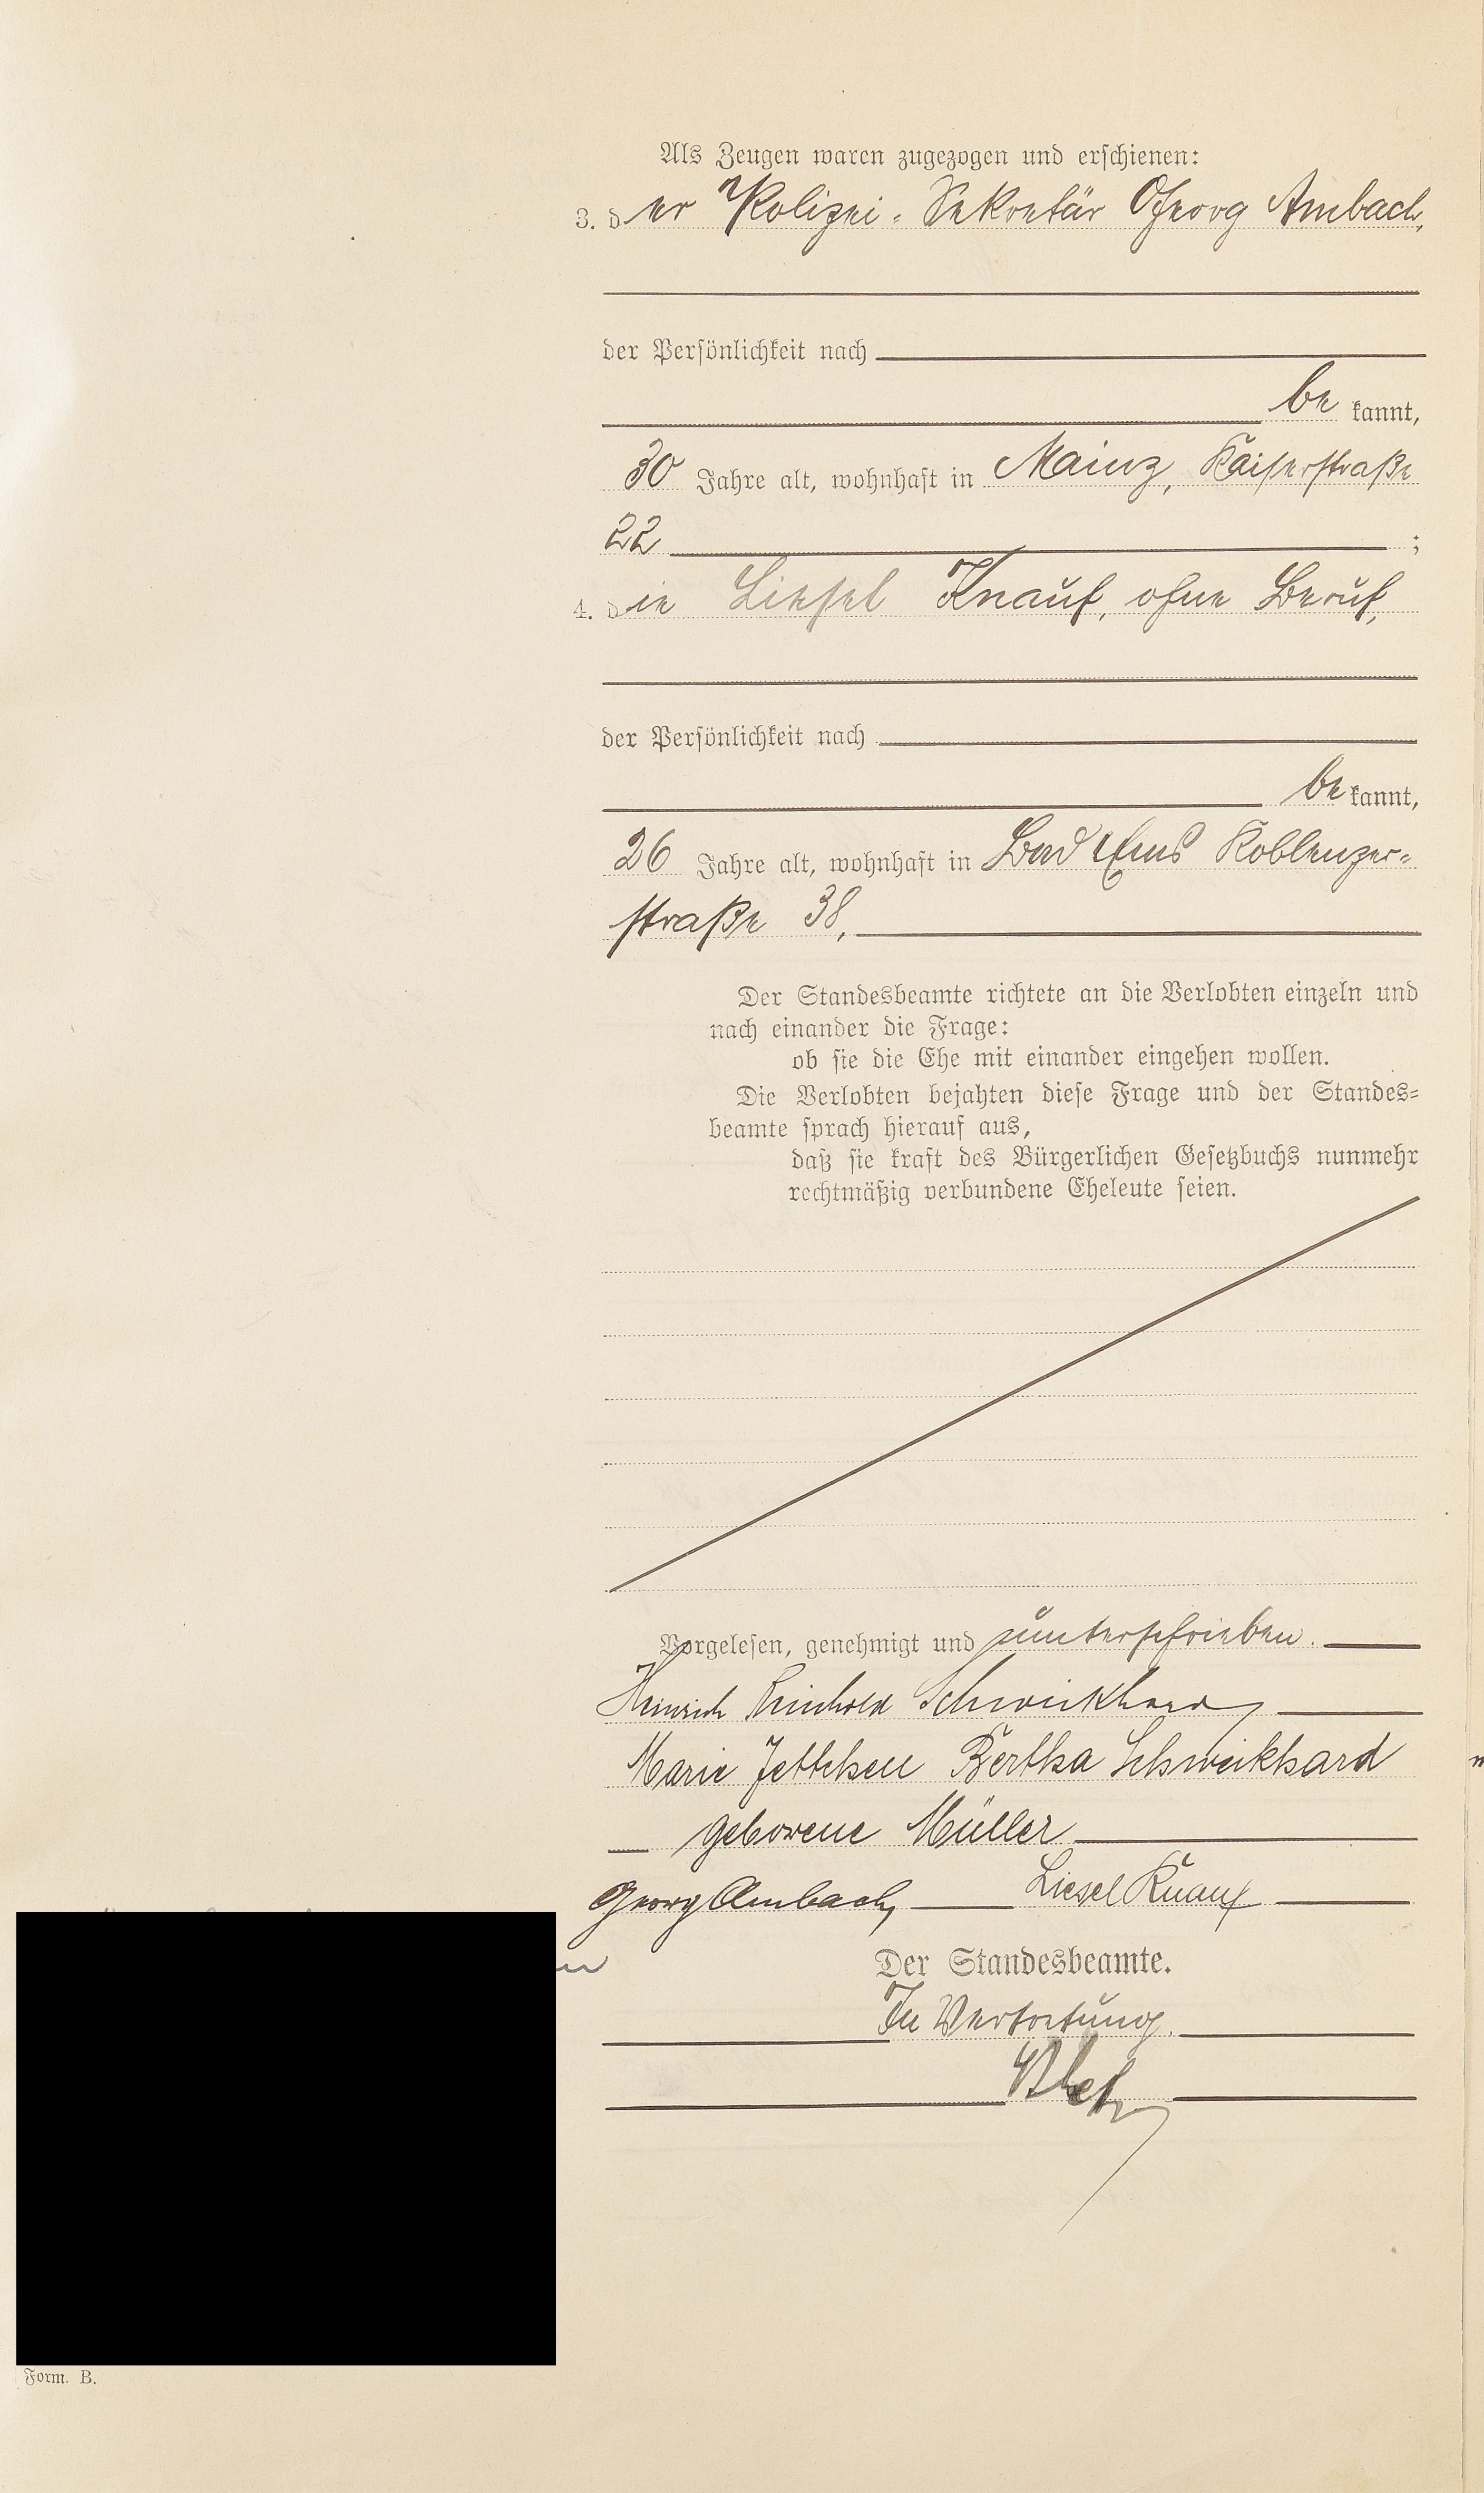 Als Zeugen waren zugezogen und erschienen:
3. der Polizei-Sekretär Georg Ambach,
der Persönlichkeit nach
be kannt,
30 Jahre alt, wohnhaft in Mainz, Kaiserstraße
22 ;
4. die Liesel Knauf, ohne Beruf,
der Persönlichkeit nach
be kannt,
26 Jahre alt, wohnhaft in Bad Ems Koblenzer-
straße 38,
Der Standesbeamte richtete an die Verlobten einzeln und
nach einander die Frage:
ob sie die Ehe mit einander eingehen wollen.
Die Verlobten bejahten diese Frage und der Standes-
beamte sprach hierauf aus,
daß sie kraft des Bürgerlichen Gesetzbuchs nunmehr
rechtmäßig verbundene Eheleute seien.
Vorgelesen, genehmigt und unterschrieben.
Heinrich Reinhold Schweikhard
Marie Jettchen Bertha Schweikhard
geborene Müller
Georg Ambach, Liesel Knauf
Der Standesbeamte.
In Vertretung.
Form. B.